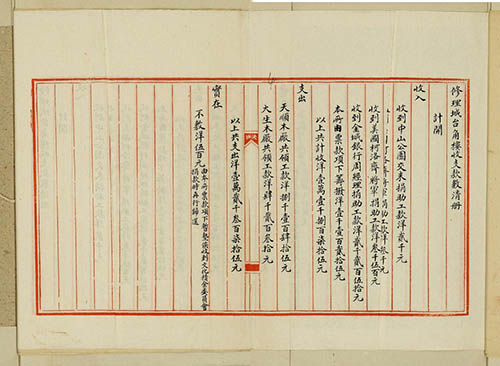 修理城台角樓收支款數清册
計開
收入
收到中山公園交來捐助工款洋貳千元
將軍捐助工款洋叁千元
收到美國柯洛齊將軍捐助工款洋叁千伍百元
收到金城銀行周經理捐助工款洋貳千貳百伍拾元
本府由票款項下籌撥洋壹千壹百貳拾伍元
以上共計收洋壹萬壹千捌百柒拾伍元
支出
天順木廠共領工款洋捌千壹百肆拾伍元
大生木廠共領工款洋肆千貳百叁拾元
以上共支出洋壹萬貳千叁百柒拾伍元
實在
不敷洋伍百元 由本府票款項下暫墊俟收到文化金委員會
捐款時再行歸還